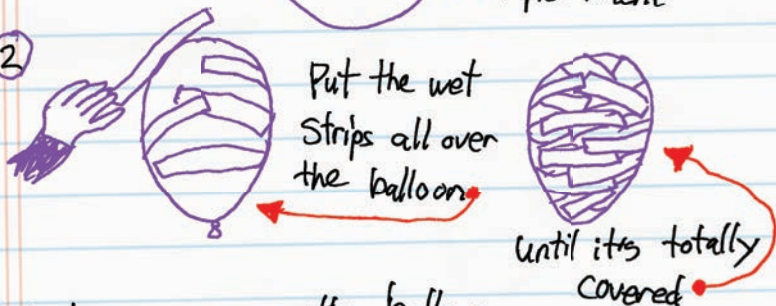 2
Put the wet
strips all over
the balloon
until it's totally
covered